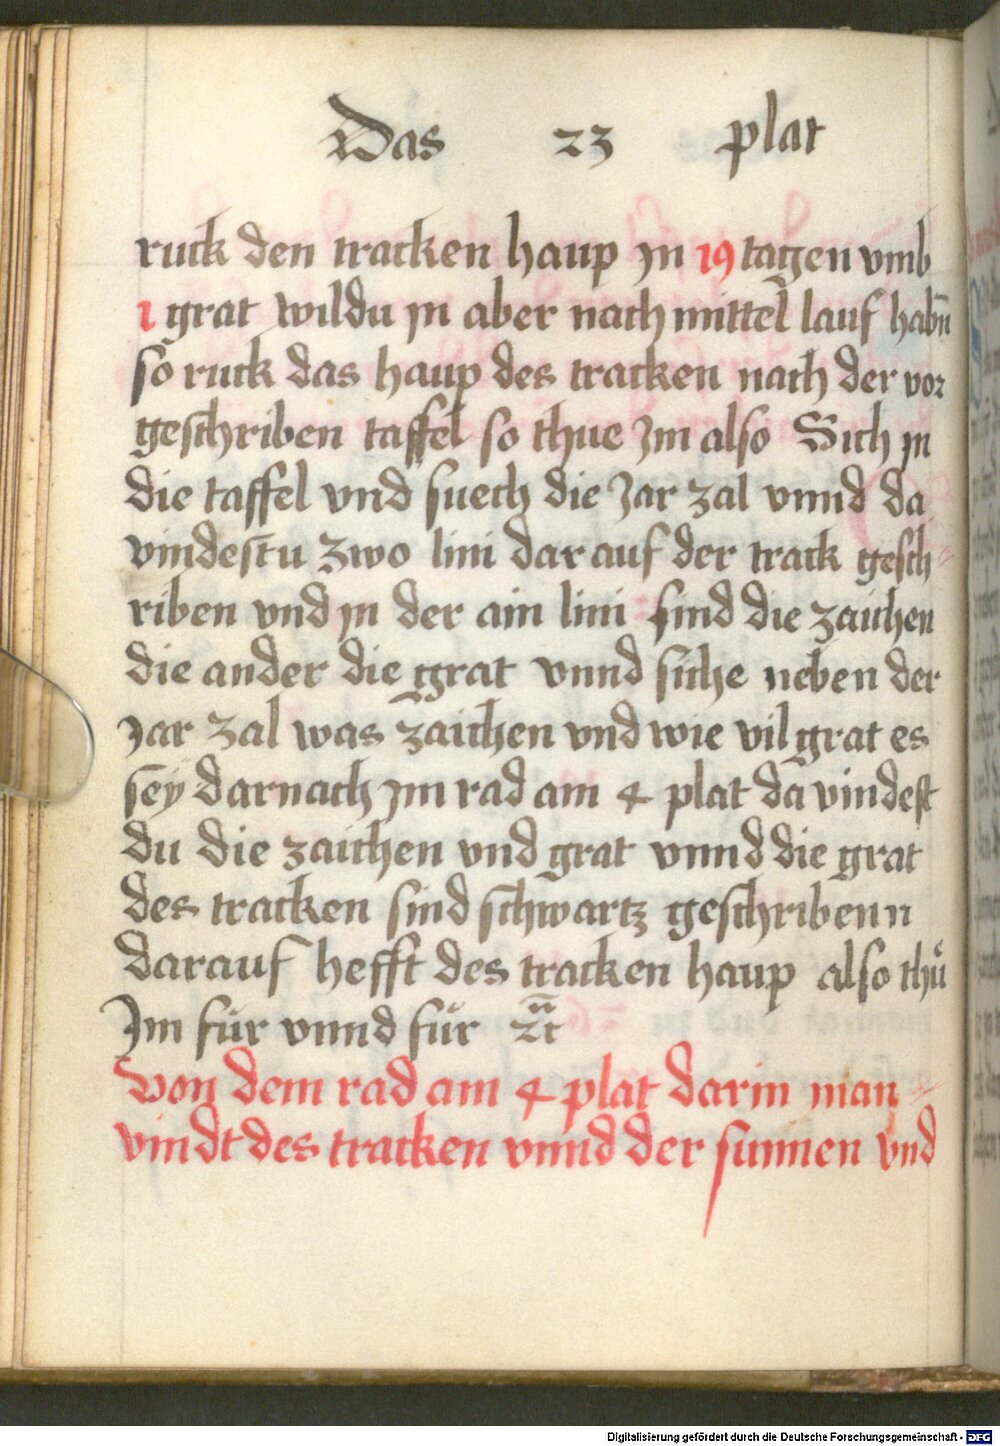 Das 23 plat
ruck den tracken haup jn 19 tagen vmb
1 grat wildu jn aber nach mittel lauf habn̄
so ruck das haup des tracken nach der vor
geschriben taffel so thue Im also Sich jn
die taffel vnd suech die Jar zal vnnd da
vindestu zwo lini dar auf der track gesch-
riben vnd jn der ain lini sind die zaichen
die ander die grat vnnd siche neben der
Jar zal was zaichen vnd wie vil grat es
sey darnach jm rad am 4 plat da vindest
du die zaichen vnd grat vnnd die grat
des tracken sind schwartz geschribenn
darauf hefft des tracken haup also thuͤ
Im für vnnd für ꝛc̄
Von dem rad am 4 plat darin man
vindt des tracken vnnd der sunnen vnd
Digitalisierung gefördert durch die Deutsche Forschungsgemeinschaft - DFG